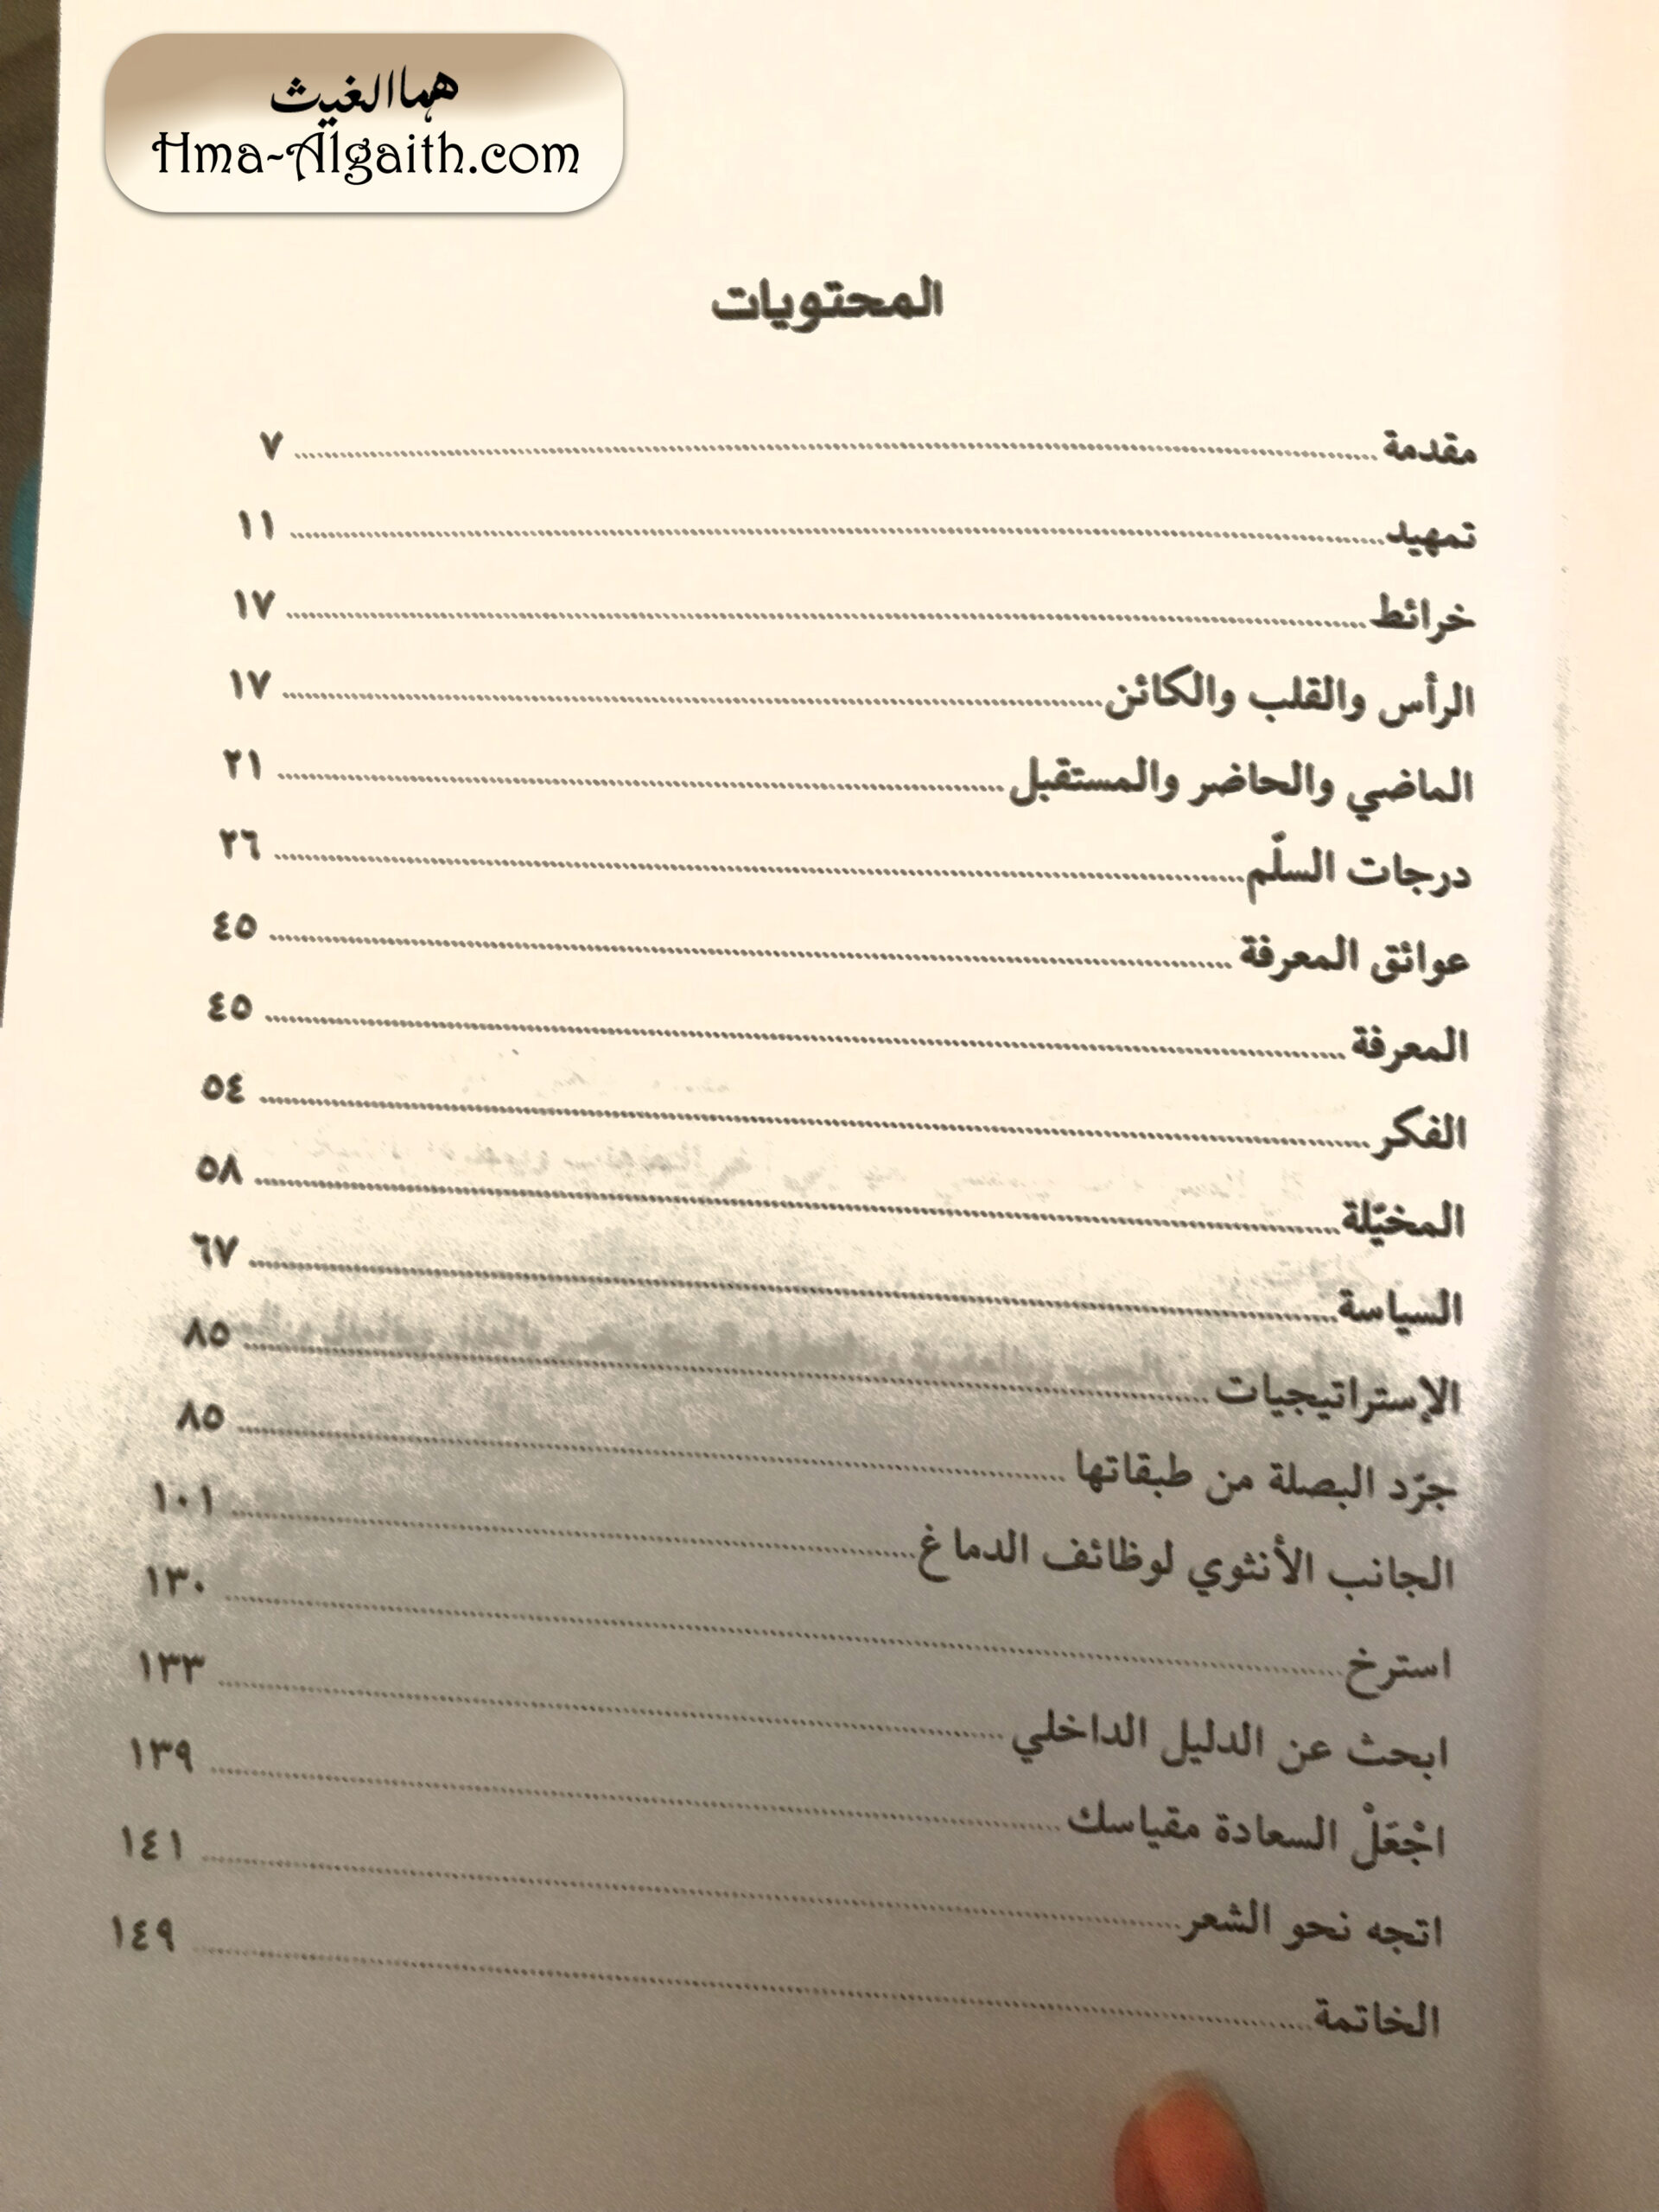 هما الغيث
Hma-Algaith.com
المحتويات
مقدمة ٧
تمهيد ١١
خرائط ١٧
الرأس والقلب والكائن ١٧
الماضي والحاضر والمستقبل ٢١
درجات السلّم ٢٦
عوائق المعرفة ٤٥
المعرفة ٤٥
الفكر ٥٤
المخيّلة ٥٨
السياسة ٦٧
الإستراتيجيات ٨٥
جرّد البصلة من طبقاتها ٨٥
الجانب الأنثوي لوظائف الدماغ ١٠١
استرخ ١٣٠
ابحث عن الدليل الداخلي ١٣٣
اجْعَلْ السعادة مقياسك ١٣٩
اتجه نحو الشعر ١٤١
الخاتمة ١٤٩